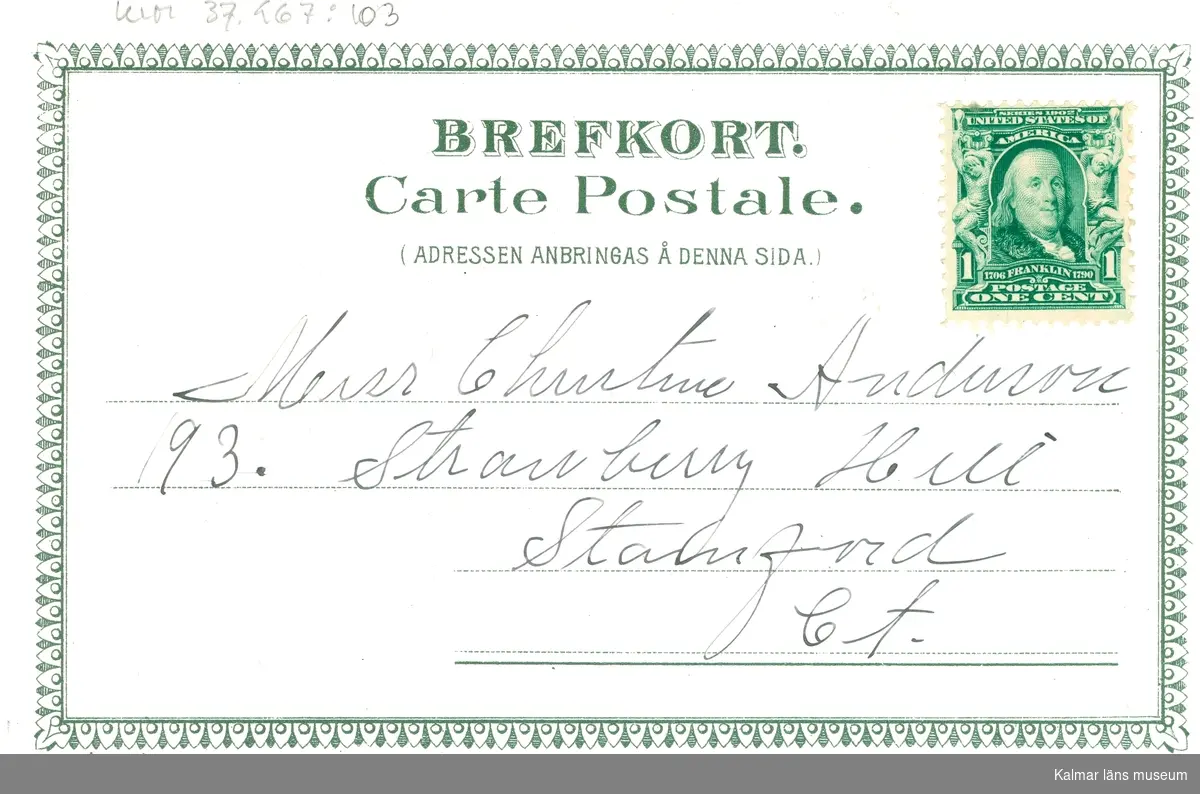 37.567:103
BREFKORT.
Carte Postale.
(ADRESSEN ANBRINGAS Å DENNA SIDA.)
SERIES 1902
UNITED STATES OF
AMERICA
1 1
1706 FRANKLIN 1790
POSTAGE
ONE CENT
Miss Christine Anderson
193. Strawberry Hill
Stamford
Ct.
Kalmar läns museum